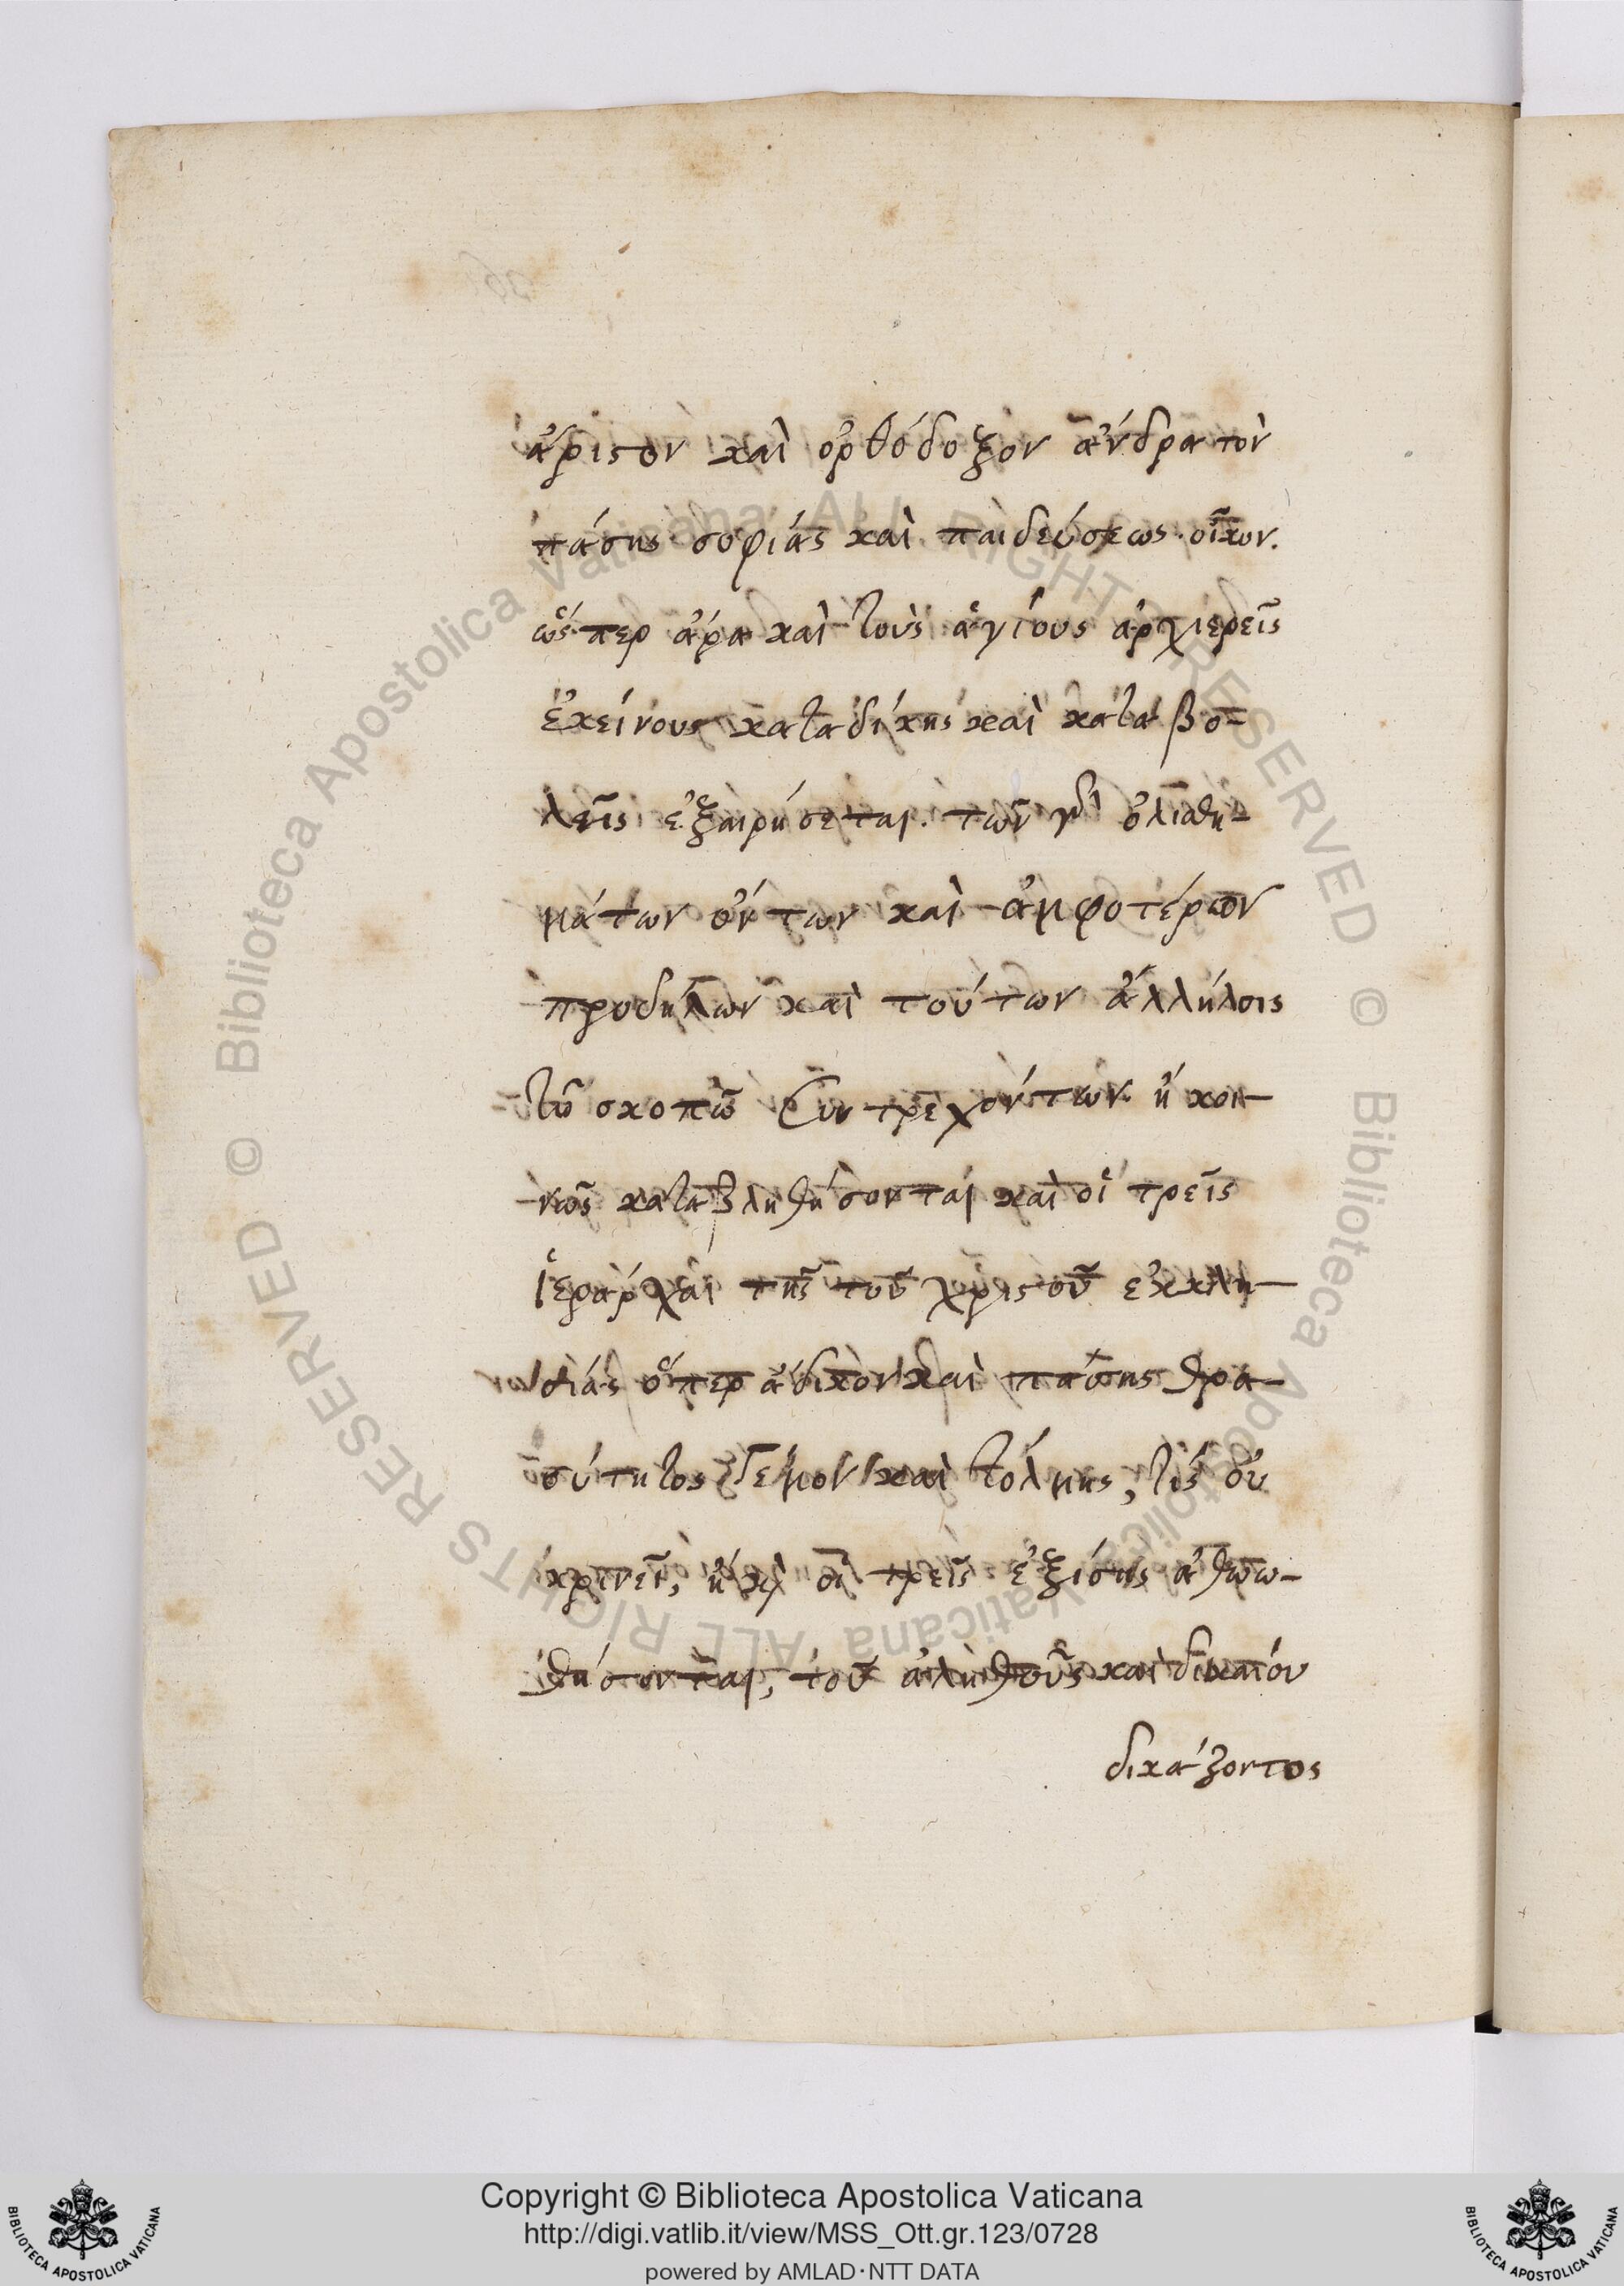 ἄριστον καὶ ὀρθόδοξον ἄνδρα τὸν
πάσης σοφίας καὶ παιδεύσεως οἶκον.
ὥσπερ ἄρα καὶ τοὺς ἁγίους ἀρχιερεῖς
ἐκείνους καταδίκης καὶ καταβο-
λεῖς ἐξαιρήσεται. τῶν γὰρ ὀλισθη-
μάτων ὄντων καὶ ἀμφοτέρων
προδήλων καὶ τούτων ἀλλήλοις
τῶ σκοπῶ συντρεχόντων. ἢ κοι-
νῶς καταβληθήσονται καὶ οἱ τρεῖς
ἱεράρχαι τῆς τοῦ χριστοῦ ἐκκλη-
σίας ὅπερ ἄδικον καὶ πάσης θρα-
σύτητος γέμον καὶ τόλμης, τίς οὐ
κρινεῖ, ἢ καὶ οἱ τρεῖς ἐξίσης ἀθωω-
θήσονται, τοῦ ἀληθοῦς καὶ δικαίου
δικάζοντος
Copyright © Biblioteca Apostolica Vaticana
http://digi.vatlib.it/view/MSS_Ott.gr.123/0728
powered by AMLAD·NTT DATA